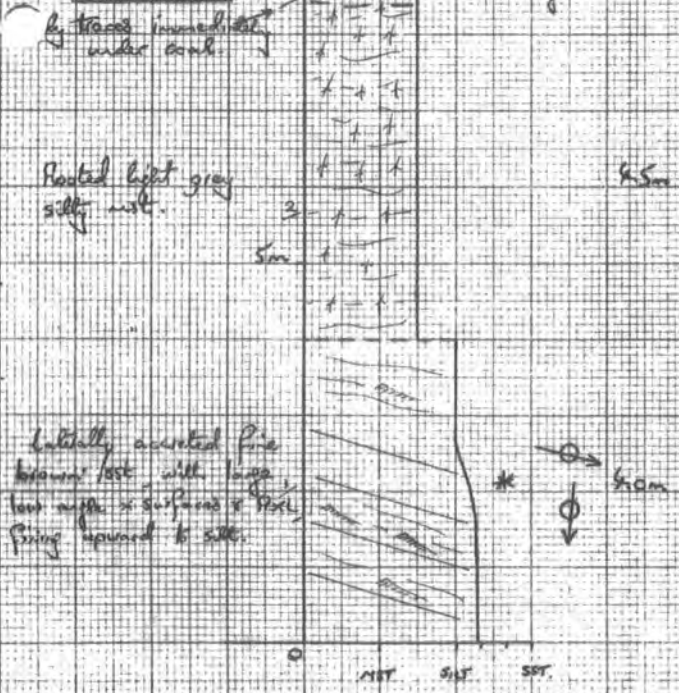 by traces immediately
under coal.
Rooted light grey
silty mst.
3
5m
4.5m
Laterally accreted fine
brown sst with large,
low angle x surfaces &
fining upward to silt.
*
4.0m
0
MST SILT SST.